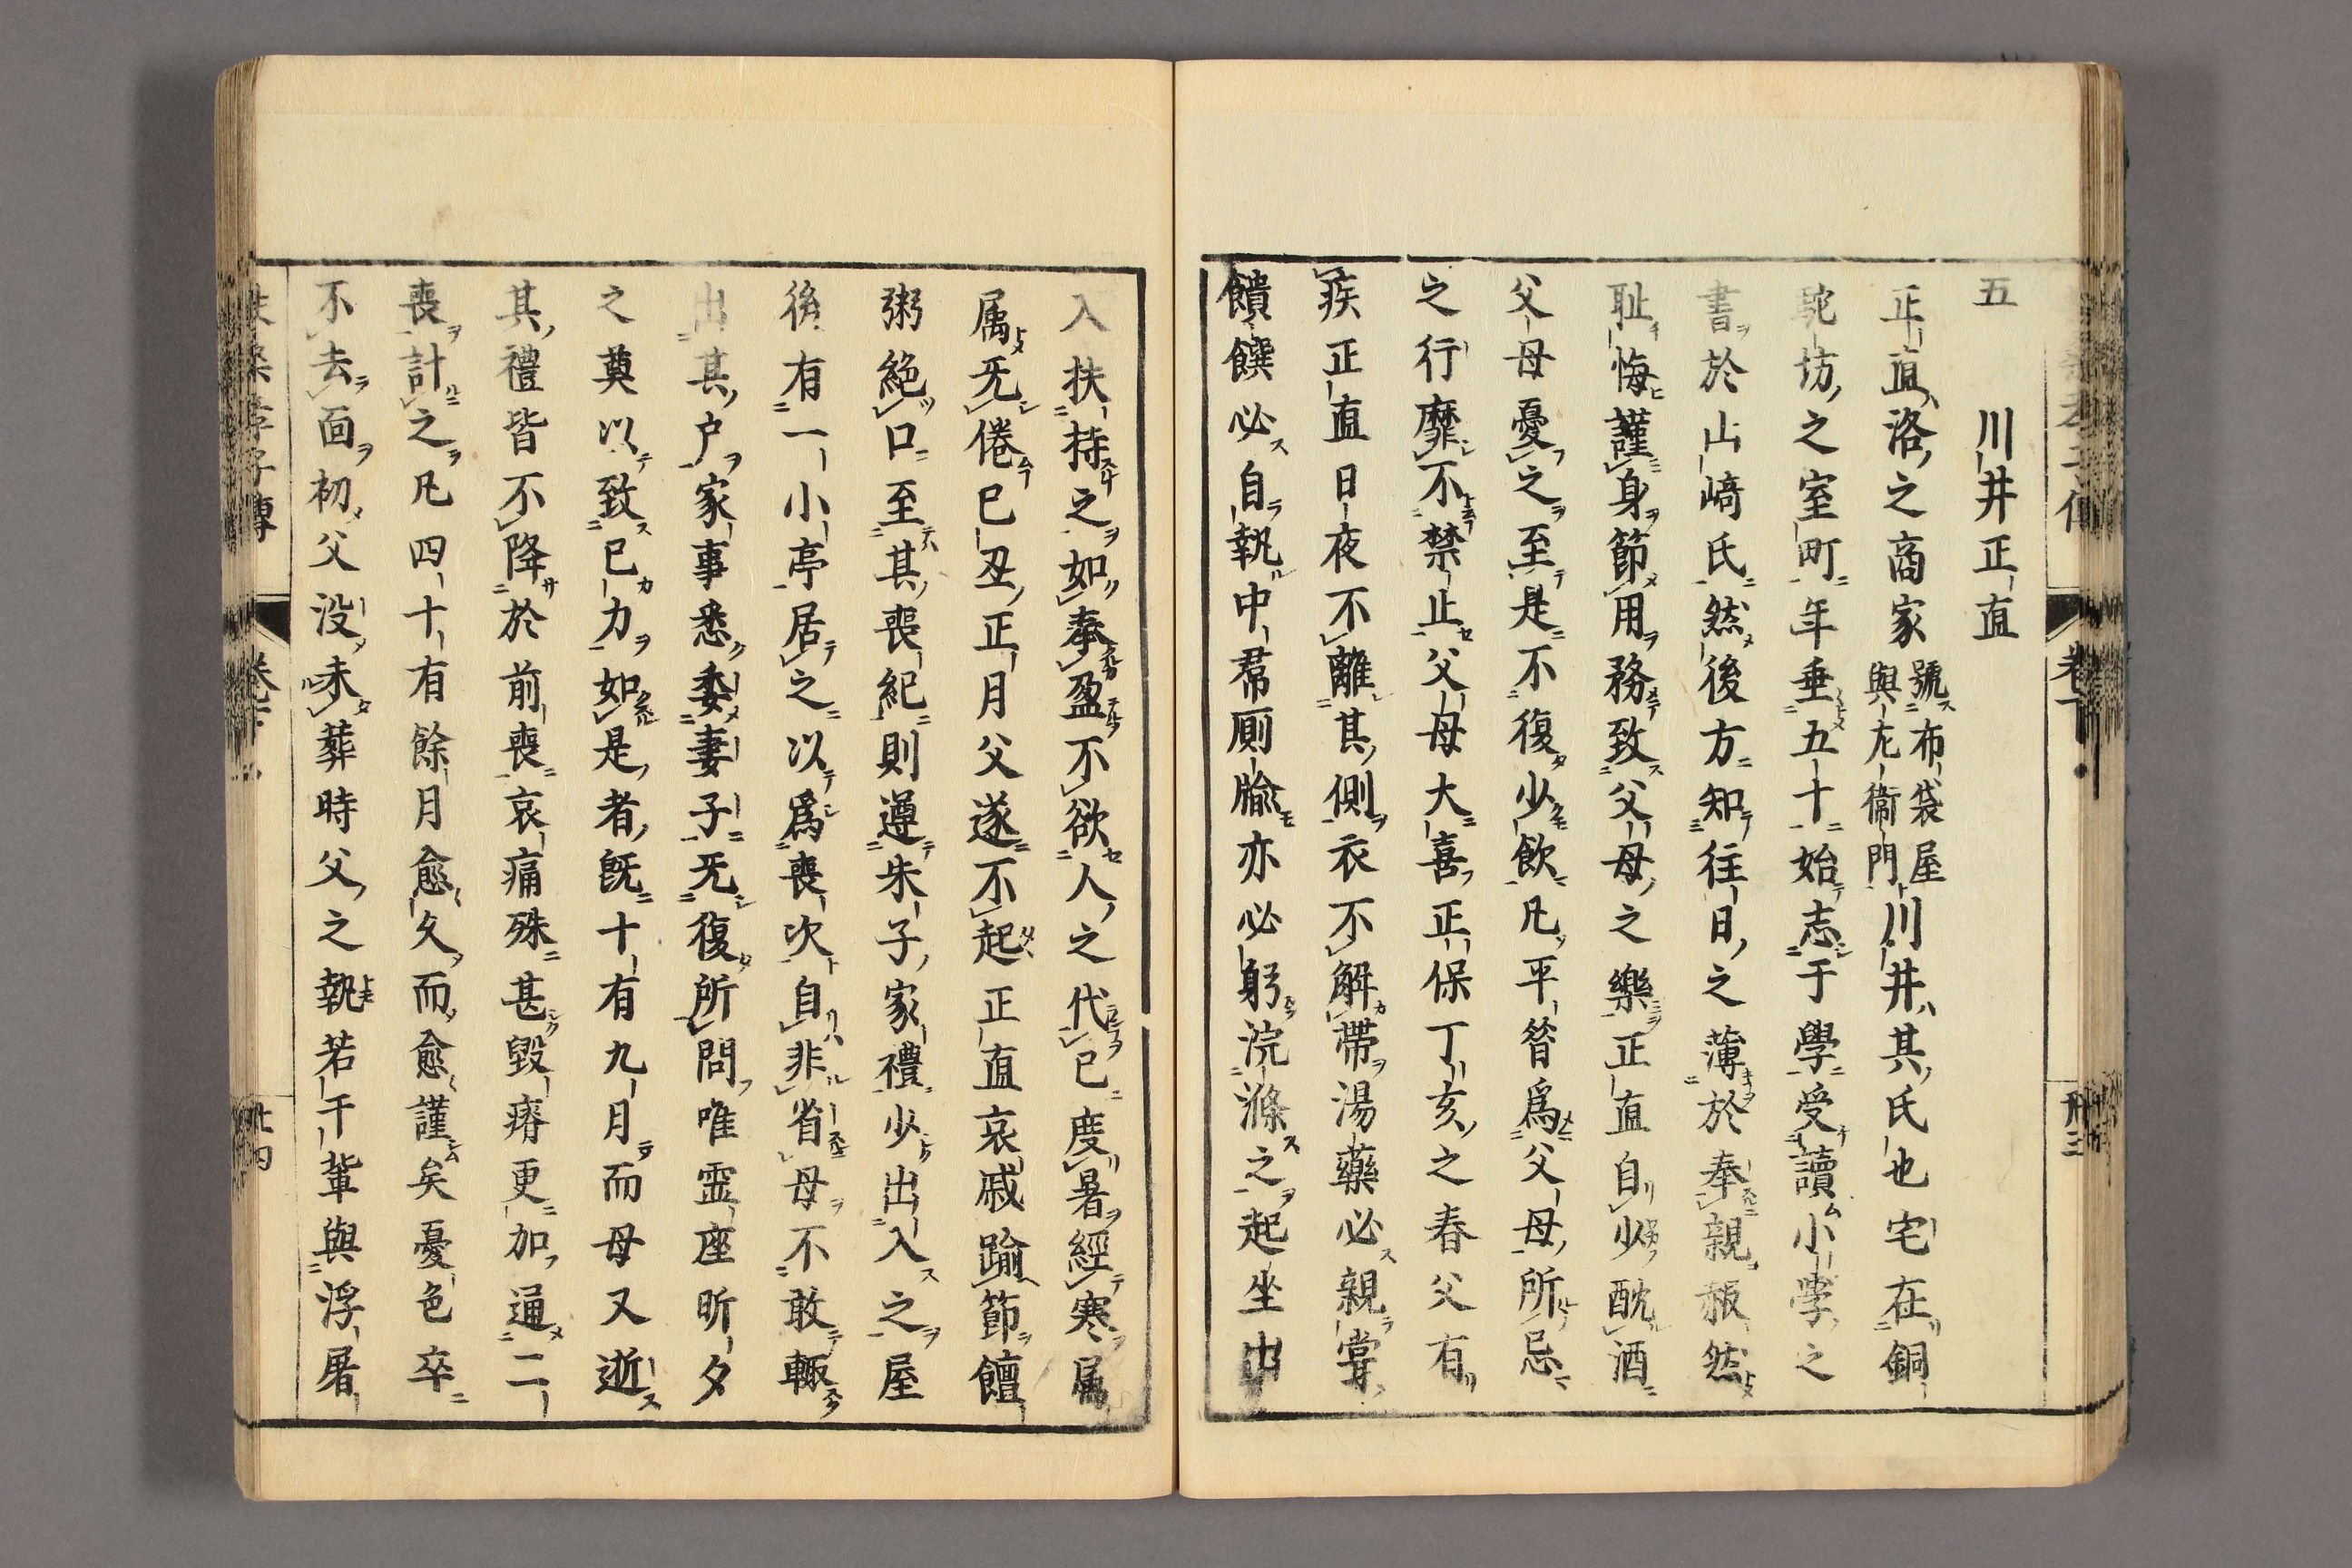 五　川井正直
正直洛之商家號布袋屋與九衞門川井其氏也宅在銅
駝坊之室町年垂五十始志于學受讀小學之
書於山﨑氏然後方知往日之薄於奉親赧然
耻悔謹身節用務致父母之樂正直自少酖酒
父母憂之至是不復少飲凡平昝爲父母所忌
之行靡不禁止父母大喜正保丁亥之春父有
疾正直日夜不離其側衣不解帶湯藥必親甞
饋饌必自執中帬厠牏亦必躬浣滌之起坐出
入扶持之如奉盈不欲人之代已度暑經寒属
属旡倦已丑正月父遂不起正直哀戚踰節饘
粥絶口至其喪紀則遵朱子家禮少出入之屋
後有一小亭居之以爲喪次自非省母不敢輙
出其户家事悉委妻子旡復所問唯霊座昕夕
之奠以致已力如是者既十有九月而母又逝
其禮皆不降於前喪哀痛殊甚毀瘠更加通二
喪計之凡四十有餘月愈久而愈謹矣憂色卒
不去面初父没未葬時父之執若干輩與浮屠
扶桑孝子傳　卷下　廿四
卷下　廿三